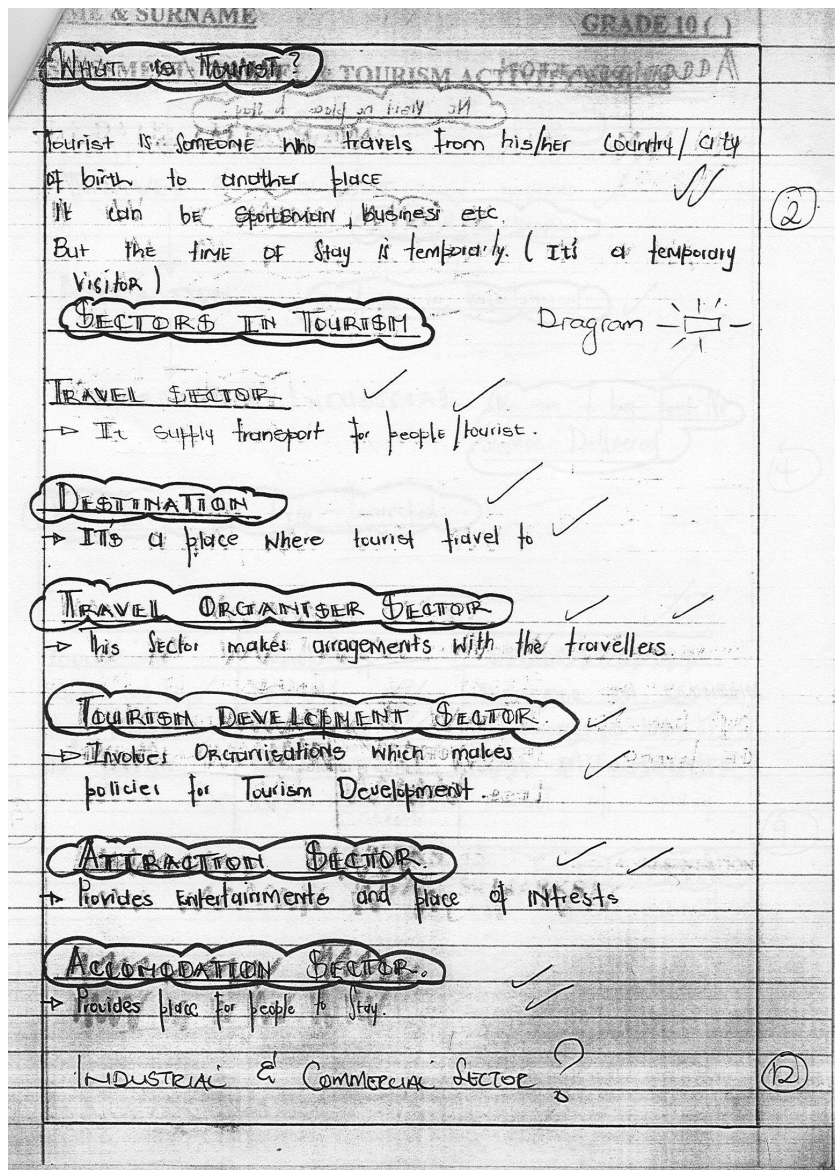 ME & SURNAME
GRADE 10 ( )
WHAT IS TOURIST?
& TOURISM
Tourist is someone who travels from his/her country/city
of birth to another place
It can be sportsman, business etc.
But the time of stay is temporarily. (It's a temporary
visitor)
2
SECTORS IN TOURISM
Dragram
TRAVEL SECTOR
→ It supply transport for people/tourist.
DESTINATION
→ IT'S a place where tourist travel to
TRAVEL ORGANISER SECTOR
→ This Sector makes arragements with the travellers.
TOURISM DEVELOPMENT SECTOR.
→ Involves Organisations which makes
policies for Tourism Development.
ATTRACTION SECTOR.
→ Provides Entertainments and place of INtrests
ACCOMODATION SECTOR.
→ Provides place for people to stay.
INDUSTRIAL & COMMERCIAL SECTOR ?
12